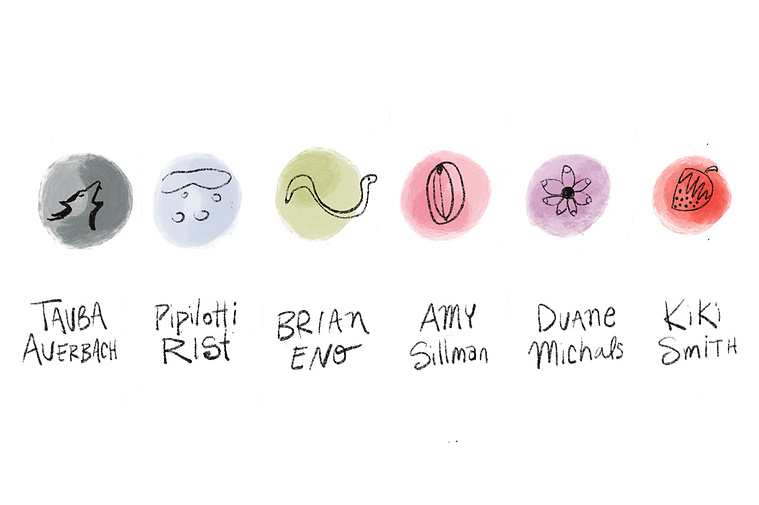 TAUBA
AUERBACH
Pipilotti
RISt
BRIAN
ENO
AMY
Sillman
DUANE
Michals
KiKi
SmiTH